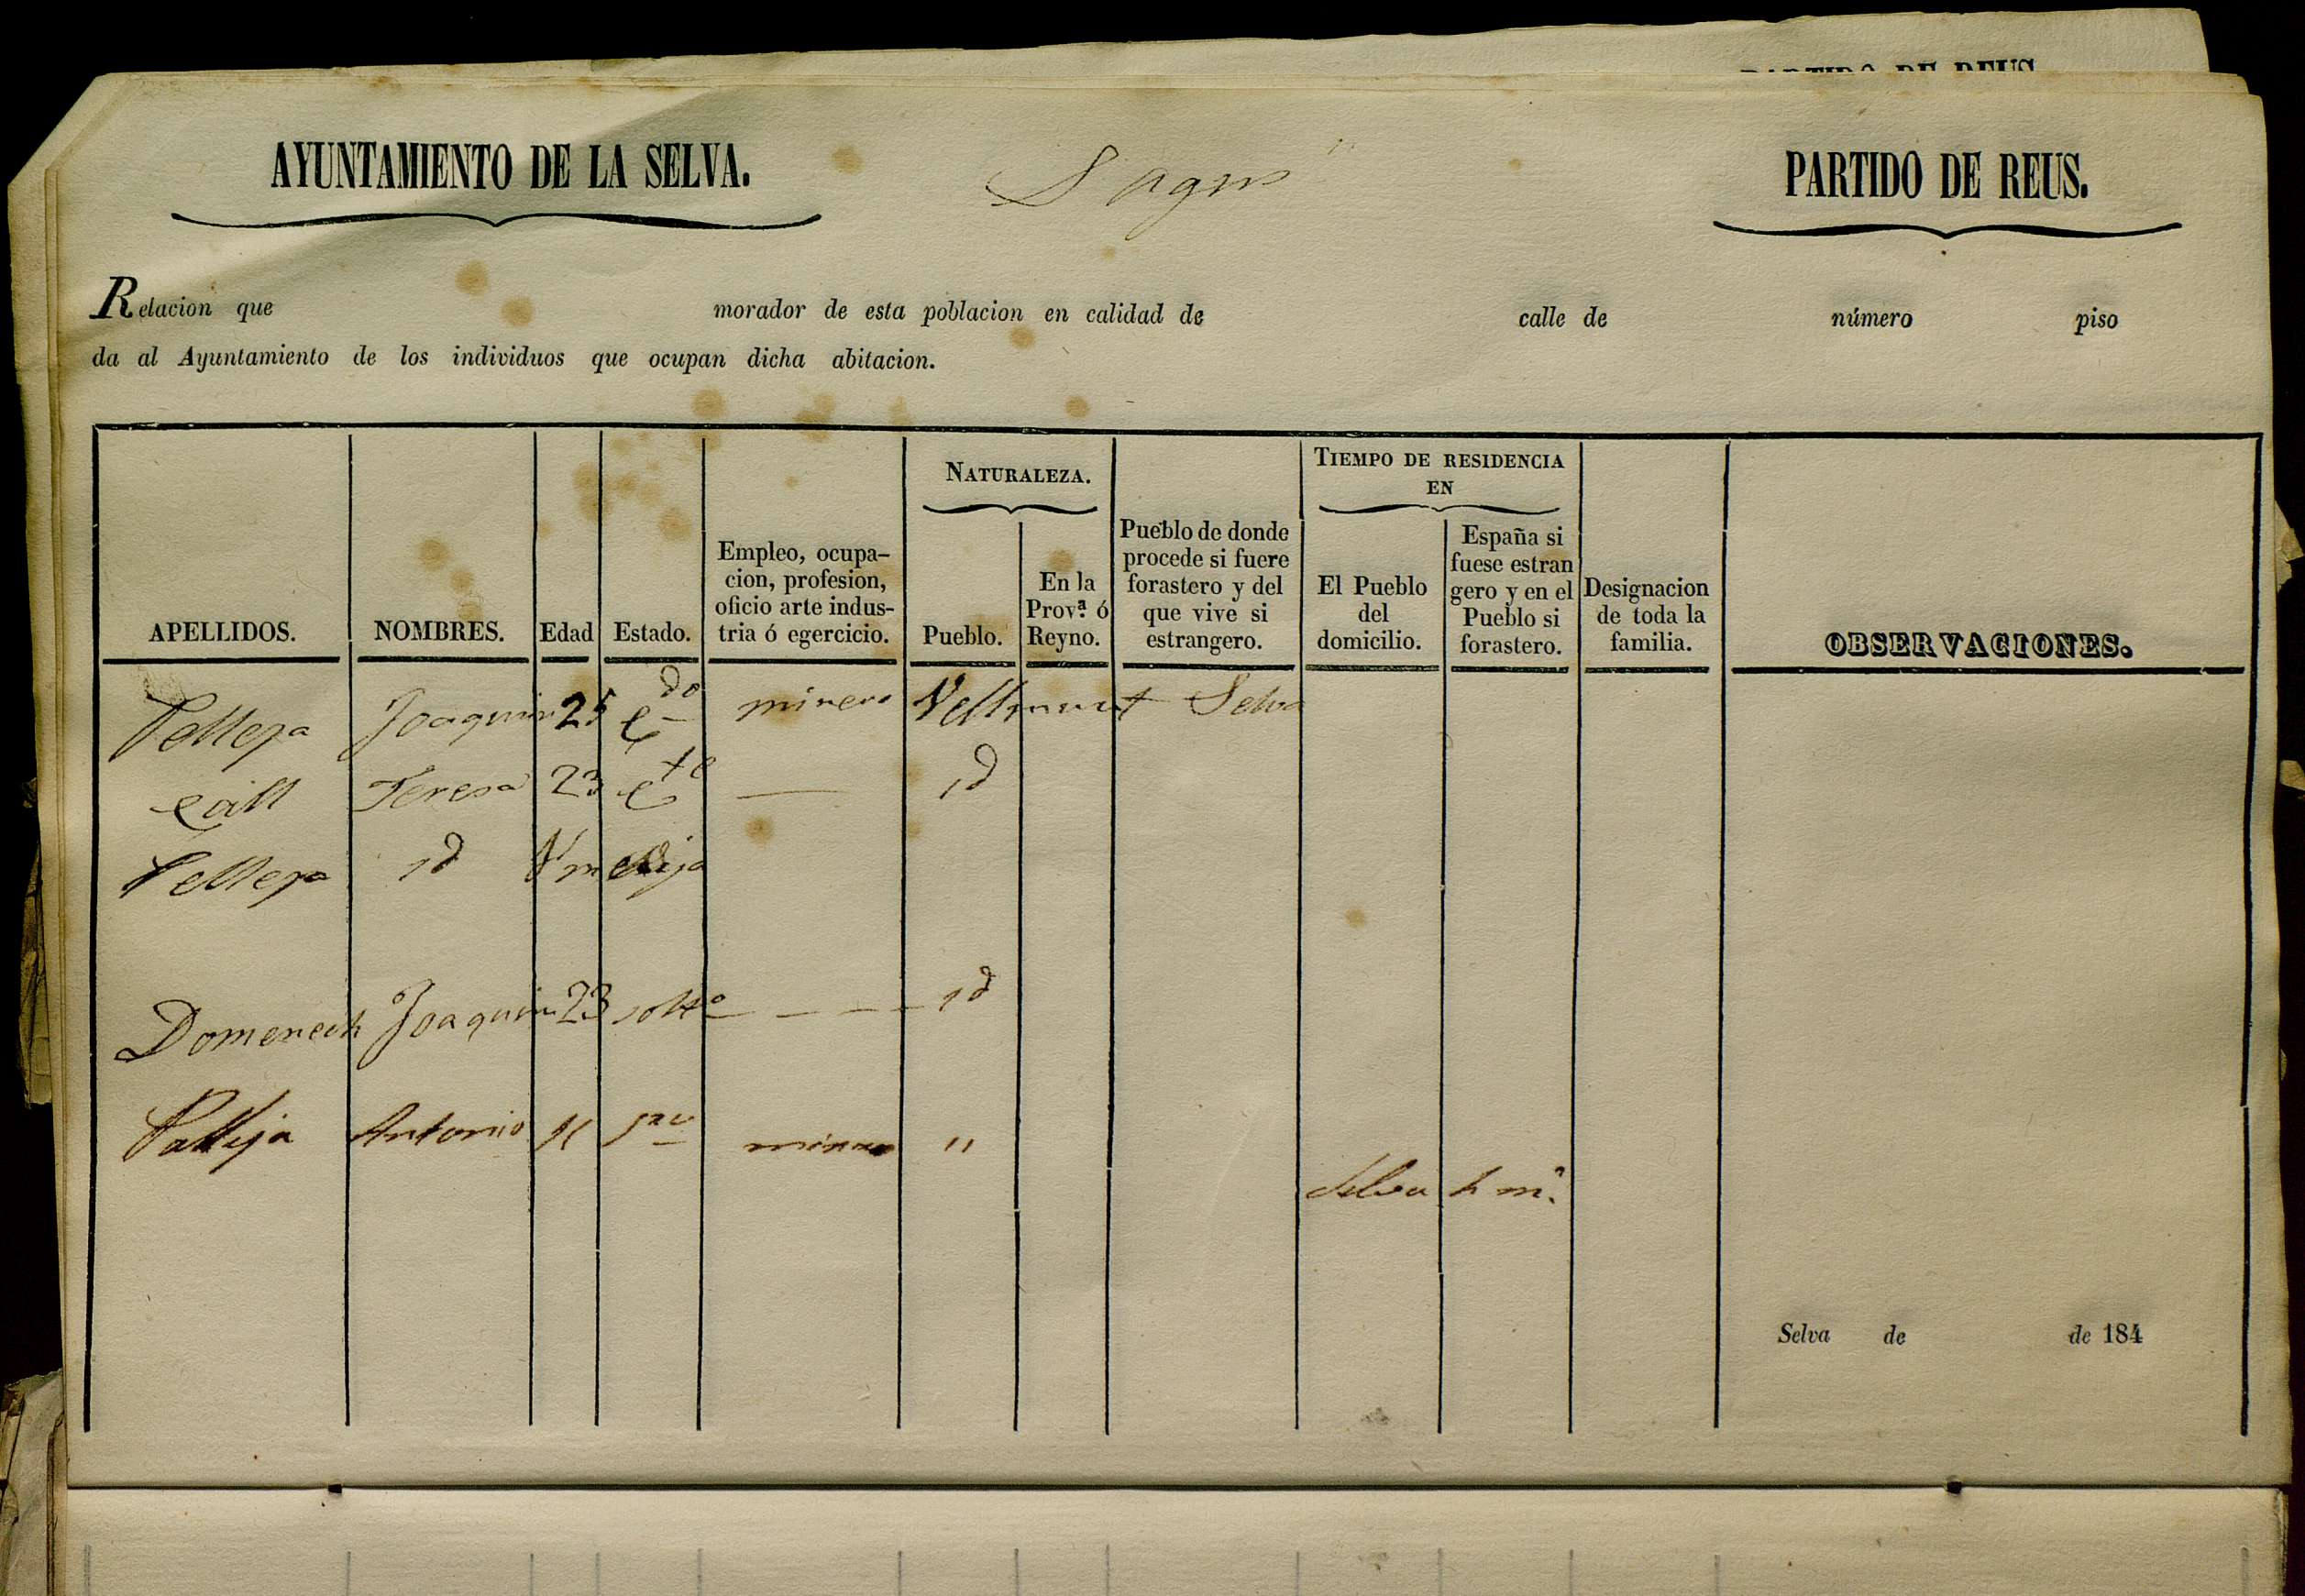 PARTIDO DE REUS
AYUNTAMIENTO DE LA SELVA.
PARTIDO DE REUS.
Relacion que morador de esta poblacion en calidad de calle de número piso
da al Ayuntamiento de los individuos que ocupan dicha abitacion.
APELLIDOS.
NOMBRES.
Edad
Estado.
Empleo, ocupa-
cion, profesion,
oficio arte indus-
tria ó egercicio.
NATURALEZA.
Pueblo.
En la
Prov.ª ó
Reyno.
Pueblo de donde
procede si fuere
forastero y del
que vive si
estrangero.
TIEMPO DE RESIDENCIA
EN
El Pueblo
del
domicilio.
España si
fuese estran
gero y en el
Pueblo si
forastero.
Designacion
de toda la
familia.
OBSERVACIONES.
Joaquin 25 C.do minero Selva
Teresa 23 C.te — id
id
Domenech Joaquin 23 solt.o — — — id
Palleja Antonio "
Selva
Selva de de 184